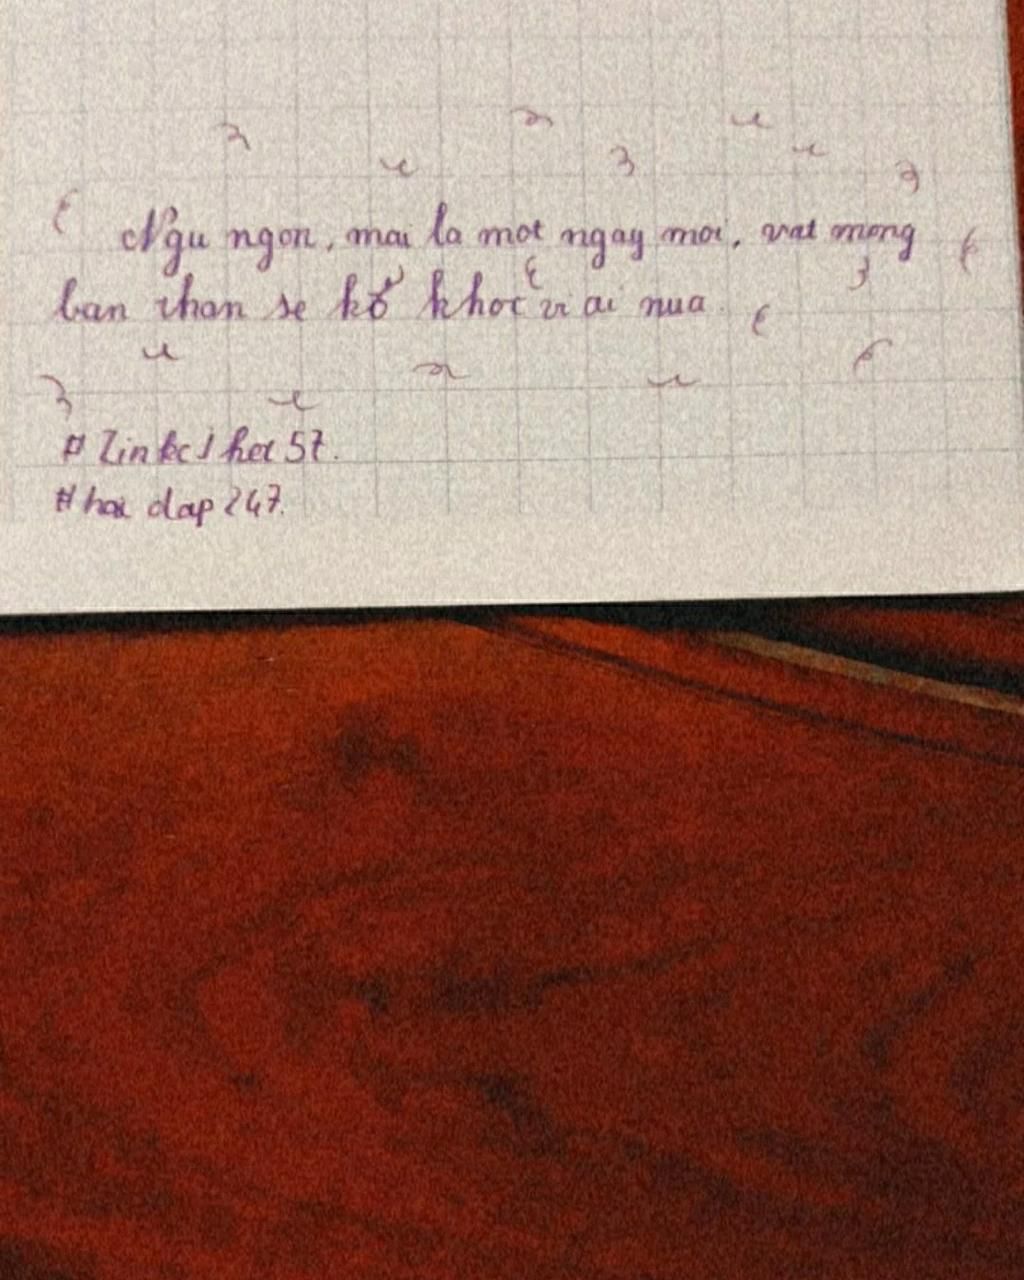 Ngu ngon, mai la mot ngay moi, vat mong
ban than se kố khoc vi ai nua.
# hoi dap 247.